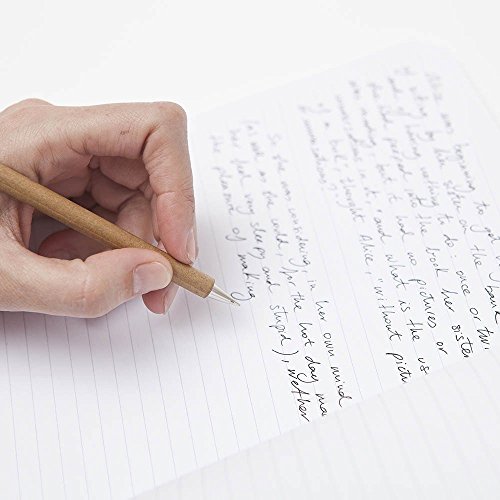 Alice was beginning to get
of sitting by her sister on the bank
and of having nothing to do: once or twi
into the book her sister
reading, but it had no pictures or
in it, "and what is the us
of a book," thought Alice, "without pictu
So she was considering, in her own mind
well as she could, for the hot day ma
her feel very sleepy and stupid), wether
the pleasure of making